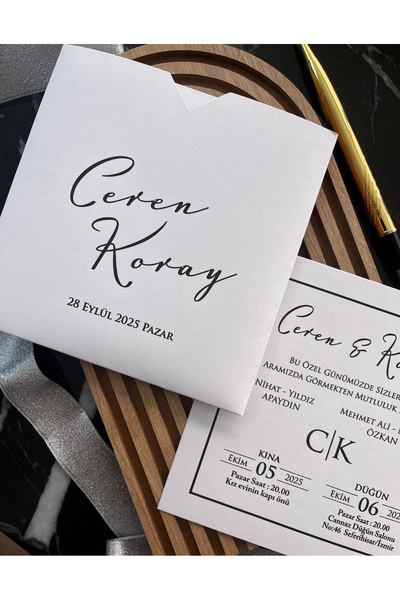 Ceren
Koray
28 Eylül 2025 Pazar
Ceren &
Bu Özel Günümüzde Sizler
Aramızda Görmekten Mutluluk
Nihat - Yıldız
Apaydın
Mehmet Ali -
Özkan
C|K
KINA
EKİM 05 2025
Pazar Saat : 20.00
Kız evinin kapı önü
DÜĞÜN
EKİM 06
Pazar Saat : 20.00
Cannaz Düğün Salonu
No:46 Seferihisar/İzmir